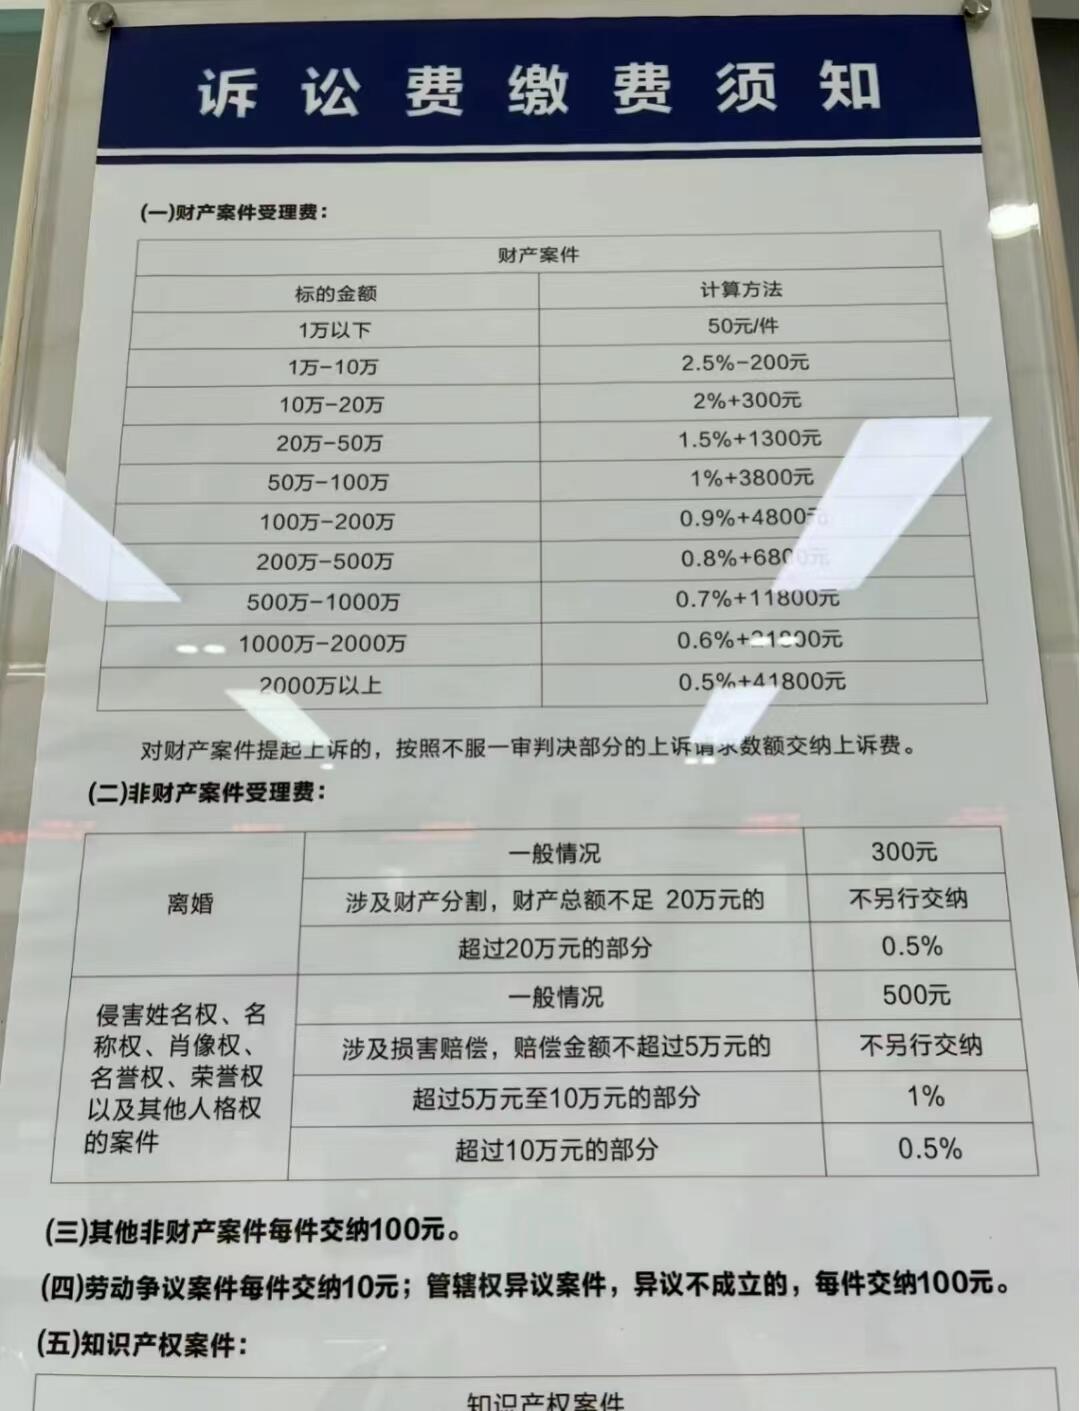 诉讼费缴费须知
(一)财产案件受理费：
财产案件
标的金额 计算方法
1万以下 50元/件
1万-10万 2.5%-200元
10万-20万 2%+300元
20万-50万 1.5%+1300元
50万-100万 1%+3800元
100万-200万 0.9%+4800元
200万-500万 0.8%+6800元
500万-1000万 0.7%+11800元
1000万-2000万 0.6%+21800元
2000万以上 0.5%+41800元
对财产案件提起上诉的，按照不服一审判决部分的上诉请求数额交纳上诉费。
(二)非财产案件受理费：
离婚
一般情况 300元
涉及财产分割，财产总额不足 20万元的 不另行交纳
超过20万元的部分 0.5%
侵害姓名权、名
称权、肖像权、
名誉权、荣誉权
以及其他人格权
的案件
一般情况 500元
涉及损害赔偿，赔偿金额不超过5万元的 不另行交纳
超过5万元至10万元的部分 1%
超过10万元的部分 0.5%
(三)其他非财产案件每件交纳100元。
(四)劳动争议案件每件交纳10元；管辖权异议案件，异议不成立的，每件交纳100元。
(五)知识产权案件：
知识产权案件